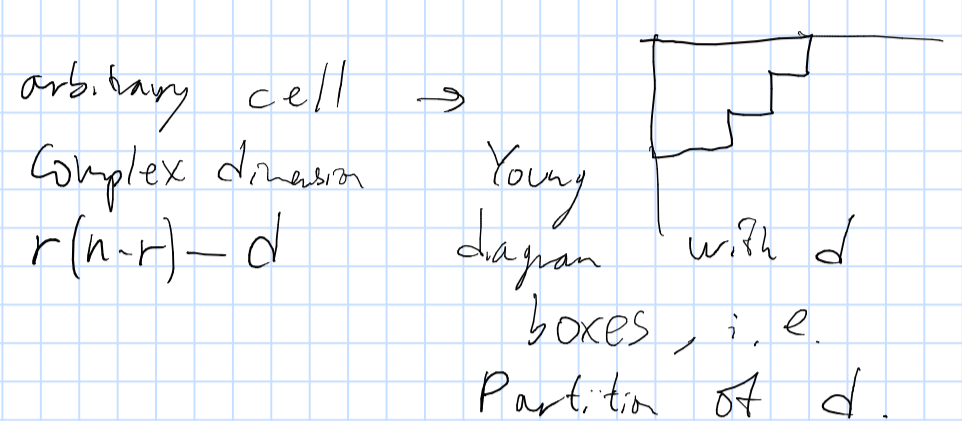 arbitrary cell →
Complex dimension Young
r(n-r) - d diagram with d
boxes, i.e.
Partition of d.